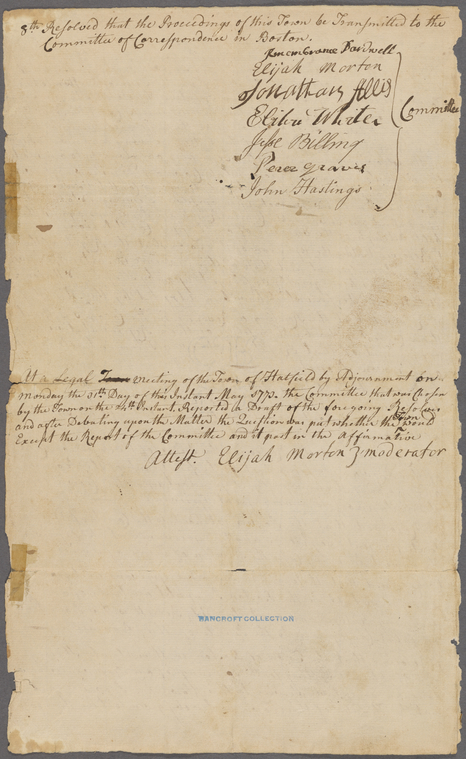 8th Resolved that the Proceedings of this Town be Transmitted to the
Committee of Correspondence in Boston.
Remembrance Bardwell
Elijah Morton
Jonathan Allis
Elihu White
Jesse Billing
Perez Graves
John Hastings
Committee
At a Legal Town meeting of the Town of Hatfield by Adjournment on
monday the 31th Day of this Instant May 1773. the Committee that was Chosen
by the Town on the Instant, Reported a Draft of the foregoing Resolves
and after Debating upon the Matter the Question was put whether the Town would
Except the Report of the Committee and it past in the Affirmative
Attest. Elijah Morton moderator
BANCROFT COLLECTION